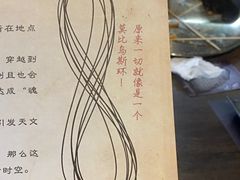 所在地点
穿越到
刻且也会
达成“魂
引发天文
那么这
时空。
原来一切就像是一个
莫比乌斯环！